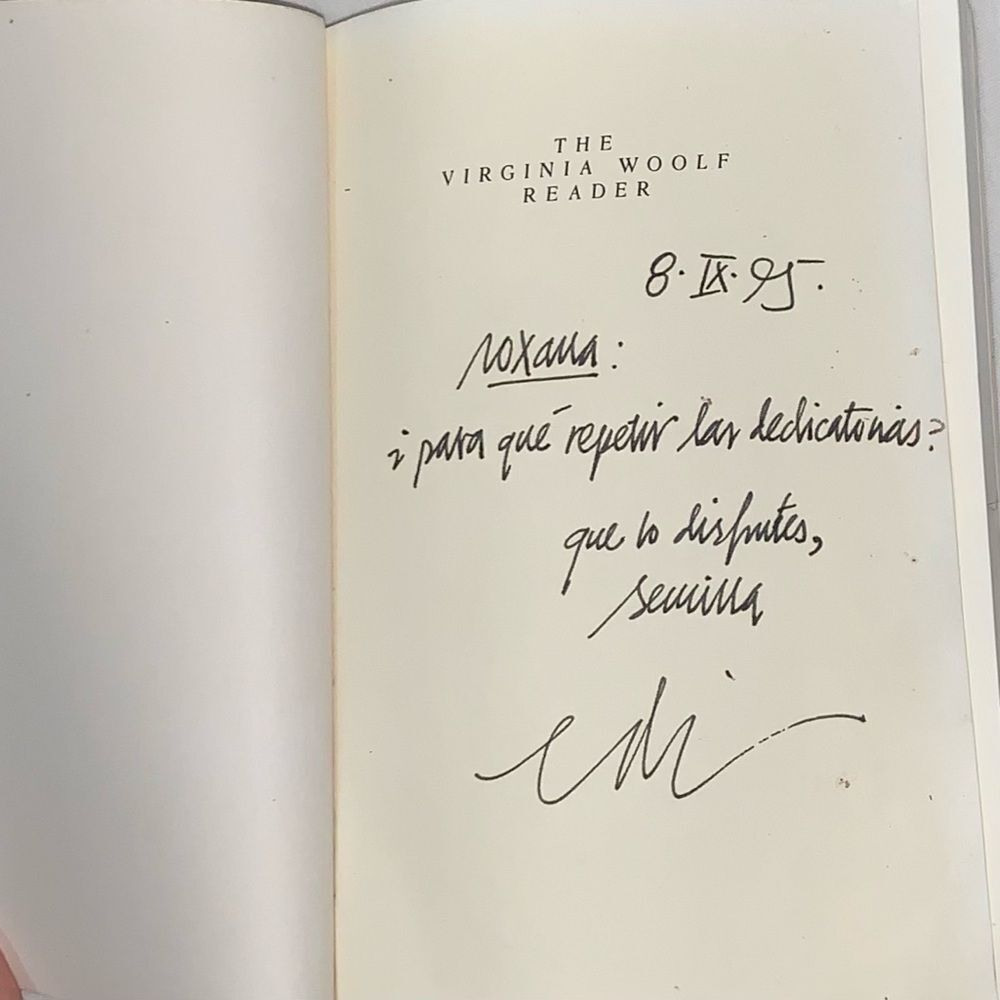 THE
VIRGINIA WOOLF
READER
8·IX·95.
roxana:
¿para qué repetir las dedicatorias?
que lo disfrutes,
semilla
edi